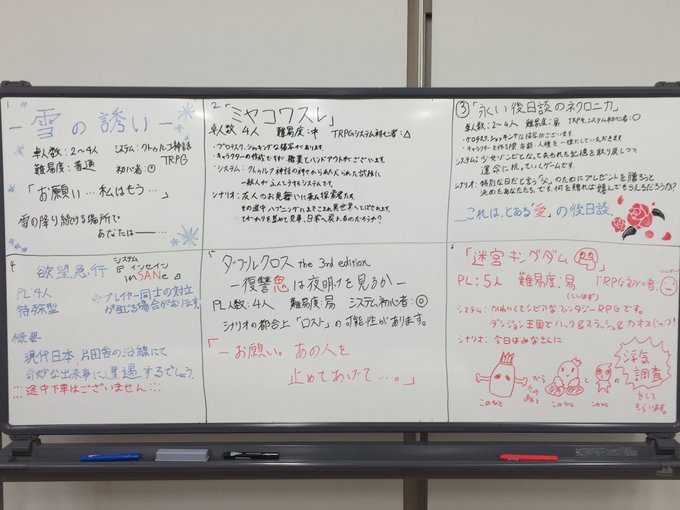 1
－雪の誘い－
卓人数:2〜4人 システム:クトゥルフ神話
難易度:普通 TRPG
初心者:◎
「お願い…私はもう…」
雪の降り続ける場所で
あなたは――…
2「ミヤコワスレ」
卓人数 4人 難易度:中 TRPGシステム初心者:△
・グロテスク、ショッキングな描写があります。
・キャラクターの作成ですが、職業とハンドアウトがございます。
シナリオ:友人のお見舞いに来た探索者たち。
③「永い後日談のネクロニカ」
卓人数:2〜4人 難易度:易 TRPG,システム初心者:○
・グロテスク,ショッキングな描写がございます。
システム:少女ゾンビとなって失われた記憶を取り戻しつつ、
運命に抗っていくゲームです。
シナリオ:特別な日だと言う「父」のためにプレゼントを贈ろうと
決めたあなたたち。でも、何を贈れば喜んでもらえるだろうか?
これは、とある「愛」の後日談。
4
欲望急行 システム
『インセイン
inSANe』△
PL:4人
特殊型
※プレイヤー同士の対立
が生じる場合があります。
概要
現代日本、片田舎の沿線にて
奇妙な出来事に遭遇するでしょう。
途中下車はございません
5
ダブルクロス the 3rd edition
―復讐鬼は夜明けを見るか―
PL人数:4人 難易度:易 システム初心者:◎
シナリオの都合上「ロスト」の可能性があります。
「―お願い。あの人を
止めてあげて…。」
6
「迷宮キングダム」
PL:5人 難易度:易 TRPG初心者:
システム:かわいくてシビアなファンタジーRPGです。
ダンジョン王国でハック&スラッシュ&カオス(じっ)!
シナリオ:今日はみなさんに
このひと
から
たのまれて
このひと
と
このひと
の
浮気
調査
をして
もらいます。